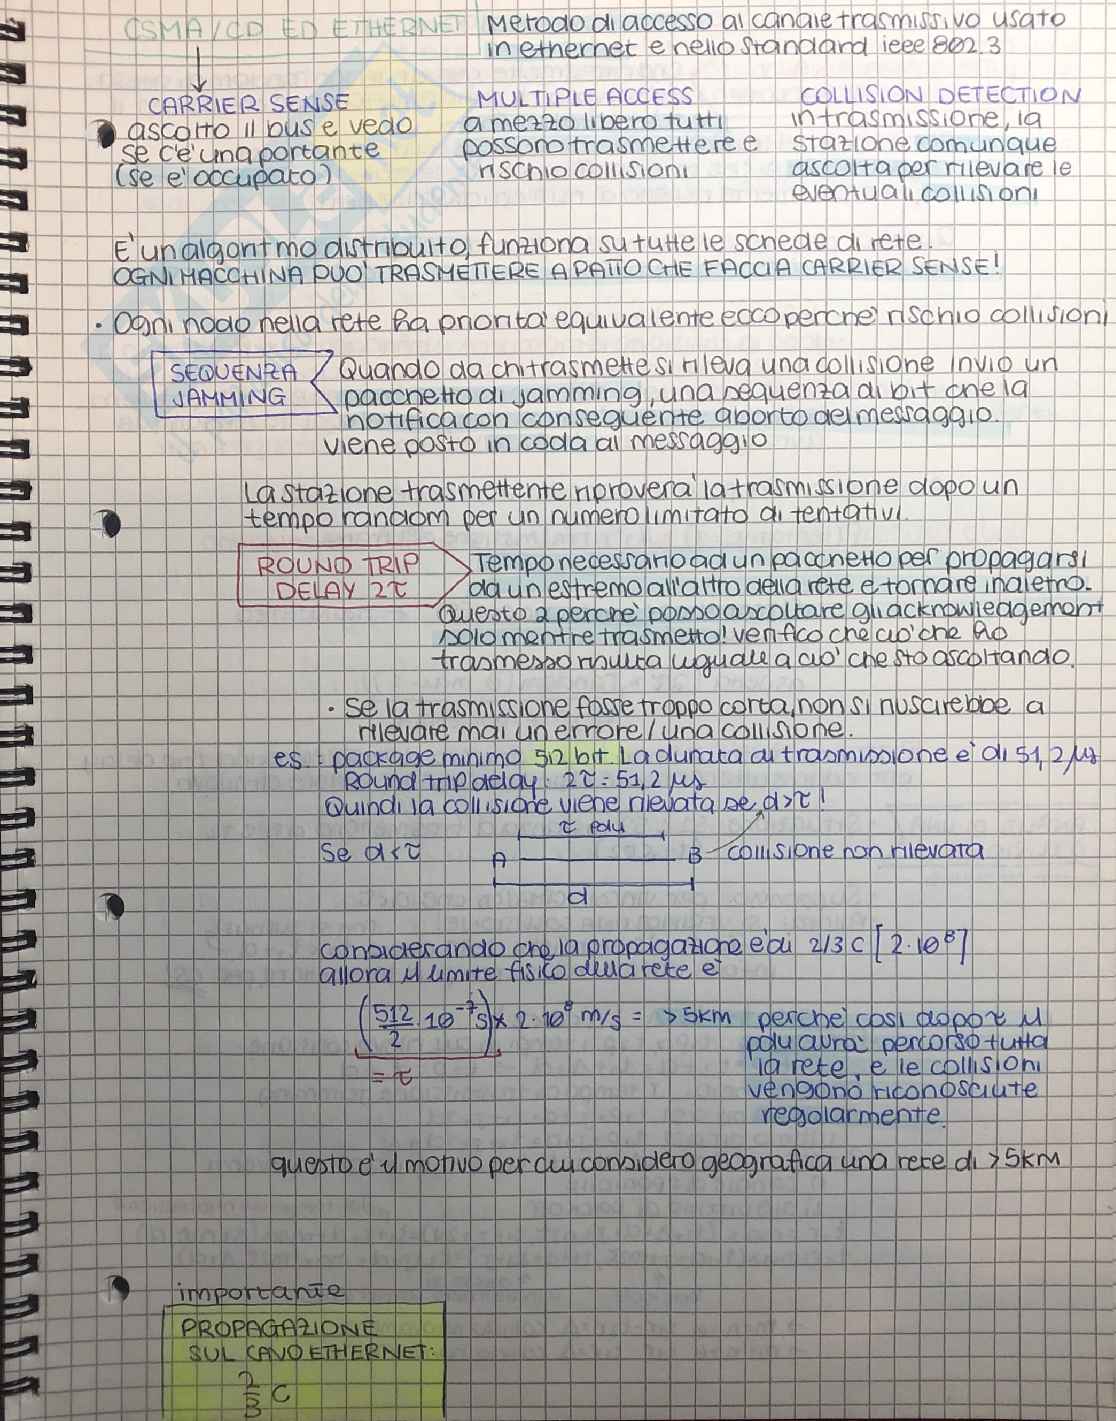 CSMA/CD ED ETHERNET
Metodo di accesso al canale trasmissivo usato
in ethernet e nello standard ieee 802.3
CARRIER SENSE
ascolto il bus e vedo
se c'è una portante
(se è occupato)
MULTIPLE ACCESS
a mezzo libero tutti
possono trasmettere e
rischio collisioni
COLLISION DETECTION
in trasmissione, la
stazione comunque
ascolta per rilevare le
eventuali collisioni
E' un algoritmo distribuito, funziona su tutte le schede di rete.
OGNI MACCHINA PUO' TRASMETTERE A PATTO CHE FACCIA CARRIER SENSE!
· Ogni nodo nella rete ha priorita' equivalente ecco perche' rischio collisioni
SEQUENZA
JAMMING
Quando da chi trasmette si rileva una collisione invio un
pacchetto di jamming, una sequenza di bit che la
notifica con conseguente aborto del messaggio.
viene posto in coda al messaggio
La stazione trasmettente riproverà la trasmissione dopo un
tempo random per un numero limitato di tentativi.
ROUND TRIP
DELAY 2τ
Tempo necessario ad un pacchetto per propagarsi
da un estremo all'altro della rete e tornare indietro.
Questo è perche' posso ascoltare gli acknowledgement
solo mentre trasmetto! verifico che ciò che ho
trasmesso risulta uguale a ciò che sto ascoltando.
· Se la trasmissione fosse troppo corta, non si riuscirebbe a
rilevare mai un errore / una collisione.
es : package minimo 512 bit. La durata di trasmissione è di 51,2 μs
Round trip delay : 2τ = 51,2 μs
Quindi la collisione viene rilevata se d>τ!
τ pdu
Se d<τ
A
B
collisione non rilevata
d
considerando che la propagazione è di 2/3 c [2·10⁸]
allora il limite fisico della rete è
(512/2 · 10⁻⁷s) × 2·10⁸ m/s = >5km perche' così dopo τ il
pdu avrà percorso tutta
= τ
la rete, e le collisioni
vengono riconosciute
regolarmente.
questo è il motivo per cui considero geografica una rete di >5km
importante
PROPAGAZIONE
SUL CAVO ETHERNET:
2/3 C